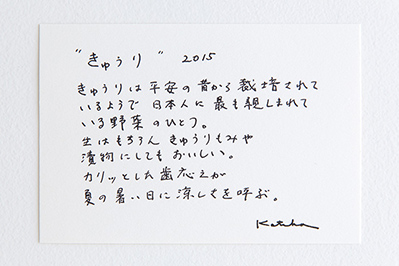 "きゅうり" 2015
きゅうりは平安の昔から栽培されて
いるようで日本人に最も親しまれて
いる野菜のひとつ。
生はもちろんきゅうりもみや
漬物にしてもおいしい。
カリッとした歯応えが
夏の暑い日に涼しさを呼ぶ。